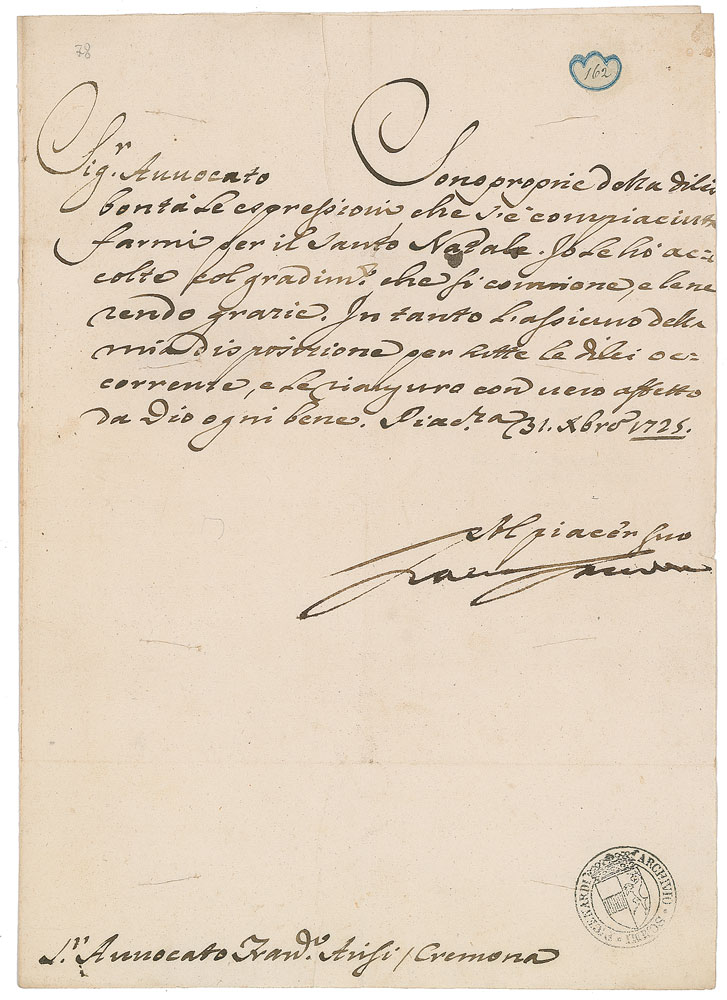 78
162
Sig.r Avvocato Sono proprie della di lei
bontà le espressioni, che s'è compiaciuta
farmi per il Santo Natale. Io le hò ac=
colte col gradim.to che si conviene, e le ne
rendo grazie. In tanto l'assicuro della
mia disposizione per tutte le di lei oc=
correnze, e le riauguro con vero affetto
da Dio ogni bene. Piac.za 31. Xbre 1725.
Al piacer suo
S.r Avvocato Fran.co Arisi / Cremona
ARCHIVIO SOMMI PICENARDI